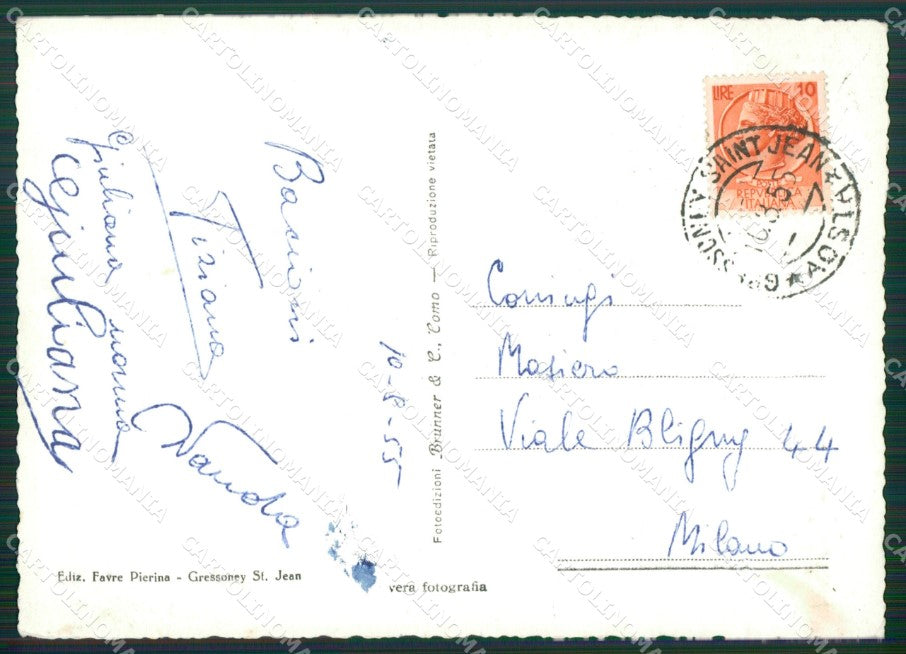 Bacioni
Tiziana
Giuliana nonna
Giuliana
Wanda
10-8-55
Ediz. Favre Pierina - Gressoney St. Jean
vera fotografia
Fotoedizioni Brunner & C., Como — Riproduzione vietata
LIRE 10
REPVBBLICA
ITALIANA
SAINT JEAN
AOSTA
Coniugi
Masiero
Viale Bligny 44
Milano
CARTOLINOMANIA